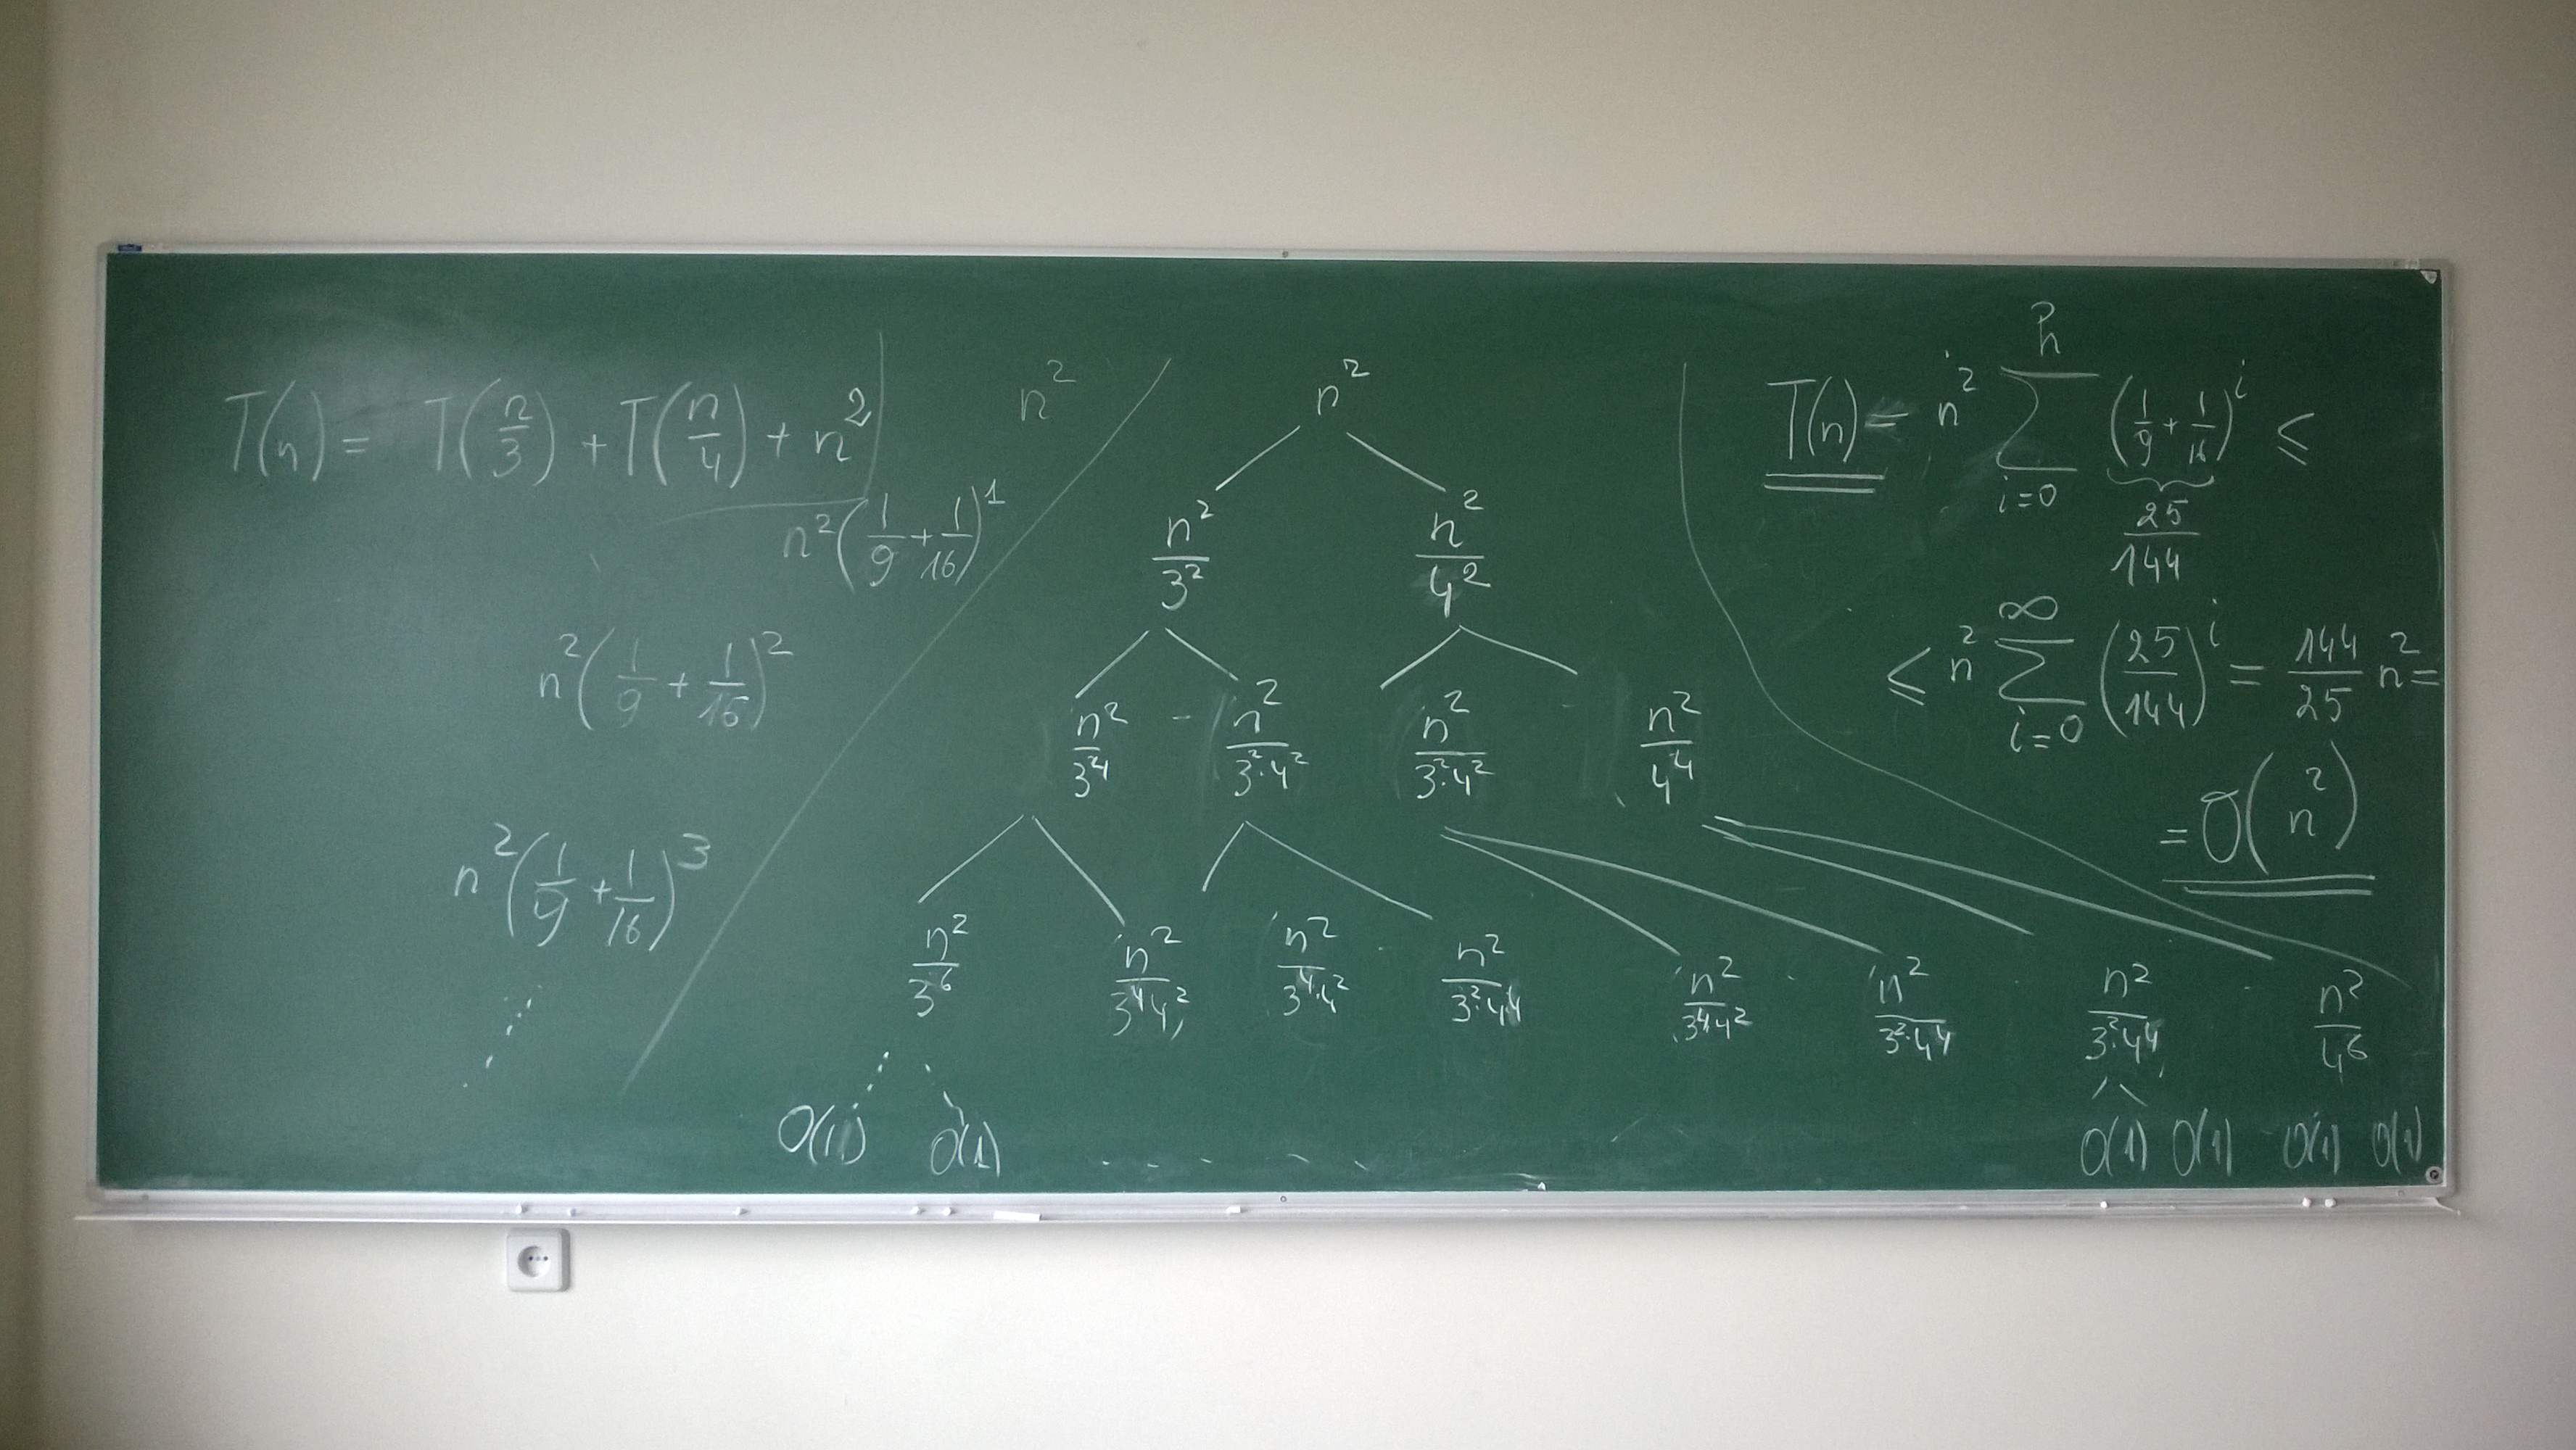 T(n) = T(n/3) + T(n/4) + n²
n²
n²(1/9 + 1/16)¹
n²(1/9 + 1/16)²
n²(1/9 + 1/16)³
n²
n²/3² n²/4²
n²/3⁴ n²/3²·4² n²/3²·4² n²/4⁴
n²/3⁶ n²/3⁴4² n²/3⁴·4² n²/3²·4⁴ n²/3⁴·4² n²/3²·4⁴ n²/3²·4⁴ n²/4⁶
O(1) O(1) O(1) O(1) O(1) O(1)
T(n) = n² ∑_{i=0}^{h} (1/9 + 1/16)^i ≤
25/144
≤ n² ∑_{i=0}^{∞} (25/144)^i = 144/25 n² =
= O(n²)